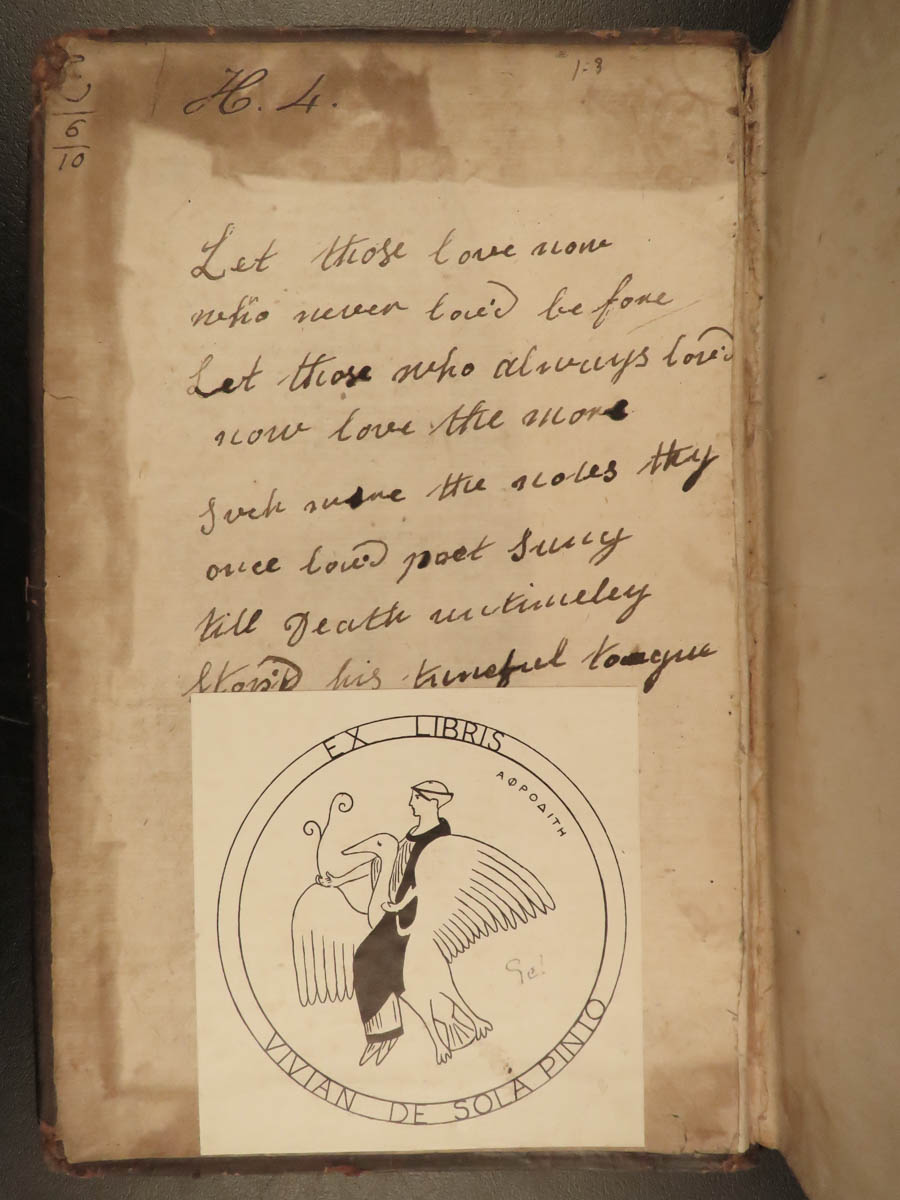 H. 4.
6
10
Let those love now
who never lov'd be fore
Let those who always lov'd
now love the more
Such were the notes thy
once lov'd poet Sung
till Death untimeley
Stop'd his tuneful tongue
EX LIBRIS
ΑΦΡΟΔΙΤΗ
VIVIAN DE SOLA PINTO